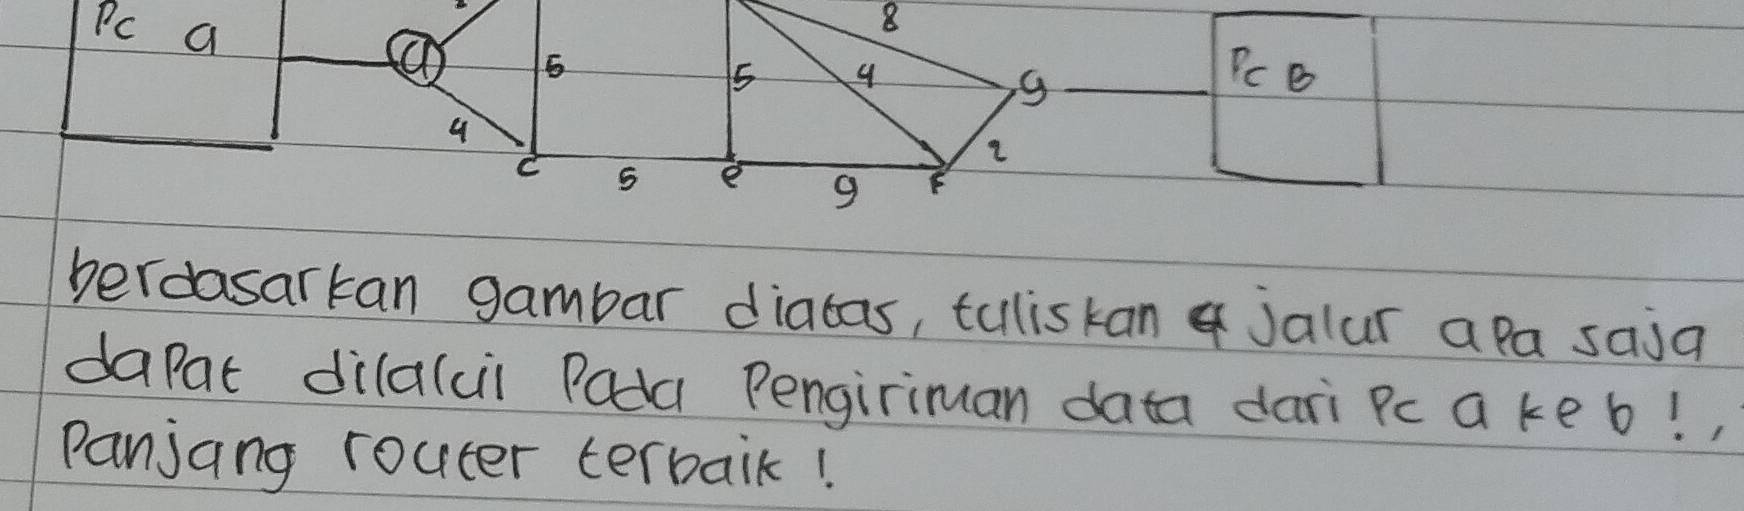 Pc a
8
a
6
5
4
g
Pc B
4
2
c
5
e
9
F
berdasarkan gambar diatas, tuliskan 4 jalur apa saja
dapat dilalui pada pengiriman data dari Pc a ke b!,
panjang router terbaik!